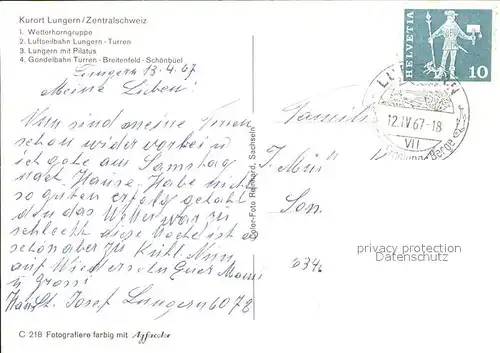 Kurort Lungern/Zentralschweiz
1. Wetterhorngruppe
2. Luftseilbahn Lungern - Turren
3. Lungern mit Pilatus
4. Gondelbahn Turren - Breitenfeld - Schönbüel
Lungern 13.4.67
Meine Lieben!
Nun sind meine Ferien
schon wider vorbei
ich gehe am Samstag
nach Hause. Habe nicht
so guten erfolg gehabt
den das Wetter war zu
schlecht diese Woche ist es
schön aber zu kühl. Nun
auf Wiedersehn Euer
u Gross
St. Josef Lungern 6078
C 218 Fotografiere farbig mit
Color-Foto Reinhard, Sachseln
HELVETIA
10
12.IV.67-18
VII
Berge
Familie
J. Müll
Son
6346
protection warranty
Datenschutz